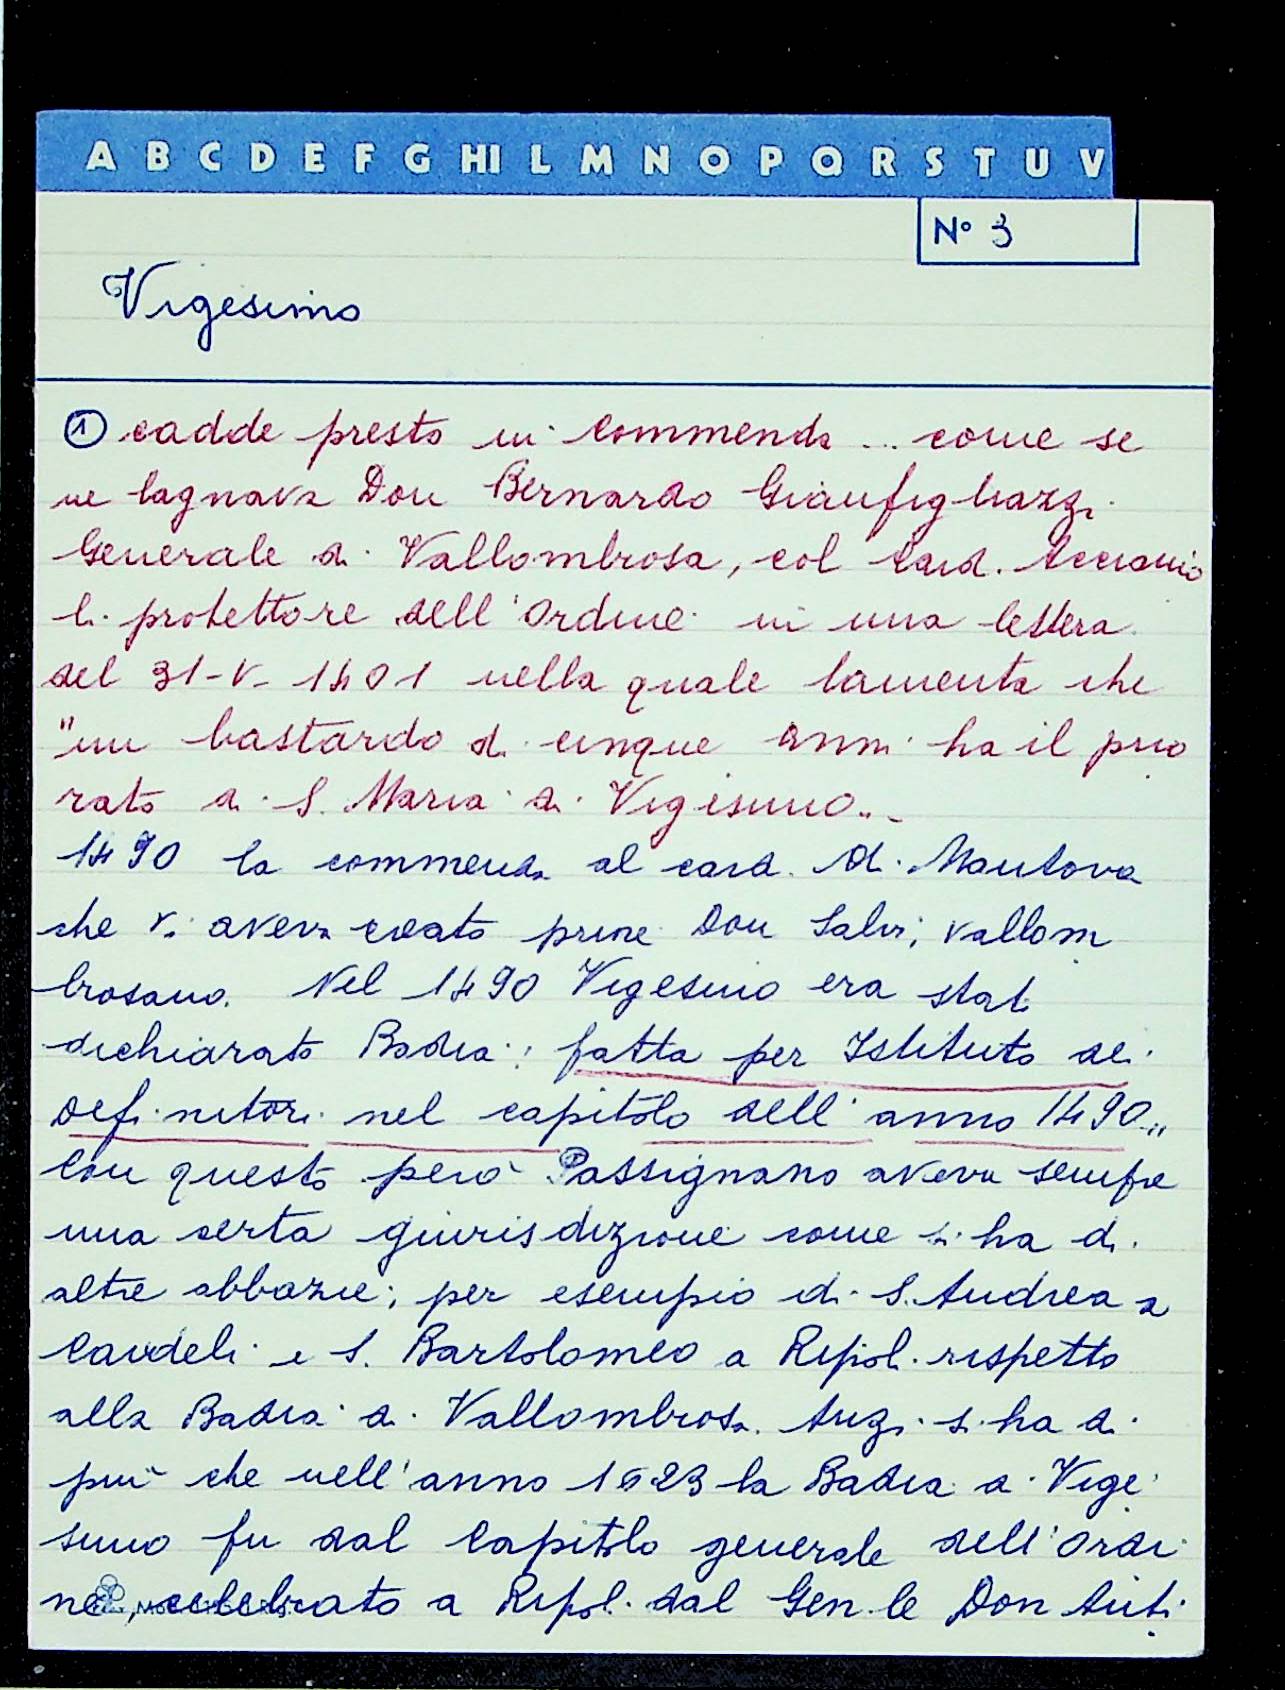 A B C D E F G HI L M N O P Q R S T U V
N° 3
Vigesimo
① cadde presto in commenda ... come se
ne lagnava Don Bernardo Gianfigliazzi
Generale di Vallombrosa, col Card. Acciaiuo
li protettore dell'Ordine in una lettera
del 31-V- 1401 nella quale lamenta che
"un bastardo di cinque anni ha il prio
rato di S. Maria a Vigesimo..
1490 la commenda al card. di Mantova
che vi aveva creato priore Don Salvi, vallom
brosano. Nel 1490 Vigesimo era stat
dichiarato Badia: fatta per Istituto dei
Definitori nel capitolo dell'anno 1490"
Con questo però Passignano aveva sempre
una certa giurisdizione come si ha di
altre abbazie; per esempio di S. Andrea a
Candeli e S. Bartolomeo a Ripoli rispetto
alla Badia di Vallombrosa. Anzi si ha di
più che nell'anno 1623 la Badia a Vige
simo fu dal Capitolo generale dell'Ordi
ne, celebrato a Ripoli dal Gen.le Don